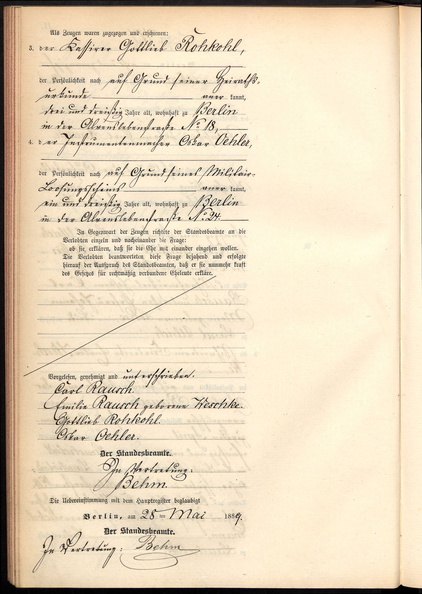 Als Zeugen waren zugezogen und erschienen:
3. der Kassirer Gottlieb Rohkohl,
der Persönlichkeit nach auf Grund seiner Heiraths-
urkunde anerkannt,
drei und dreißig Jahre alt, wohnhaft zu Berlin
in der Alvenslebenstraße No 18,
4. der Instrumentenmacher Oskar Oehler,
der Persönlichkeit nach auf Grund seines Militair-
Loosungsscheins anerkannt,
ein und dreißig Jahre alt, wohnhaft zu Berlin
in der Alvenslebenstraße No 24.
In Gegenwart der Zeugen richtete der Standesbeamte an die
Verlobten einzeln und nacheinander die Frage:
ob sie erklären, daß sie die Ehe mit einander eingehen wollen.
Die Verlobten beantworteten diese Frage bejahend und erfolgte
hierauf der Ausspruch des Standesbeamten, daß er sie nunmehr kraft
des Gesetzes für rechtmäßig verbundene Eheleute erkläre.
Vorgelesen, genehmigt und unterschrieben.
Carl Rausch.
Emilie Rausch geborene Weschke.
Gottlieb Rohkohl.
Oskar Oehler.
Der Standesbeamte.
In Vertretung:
Behm
Die Uebereinstimmung mit dem Hauptregister beglaubigt
Berlin, am 28 ten Mai 1889.
Der Standesbeamte.
In Vertretung: Behm